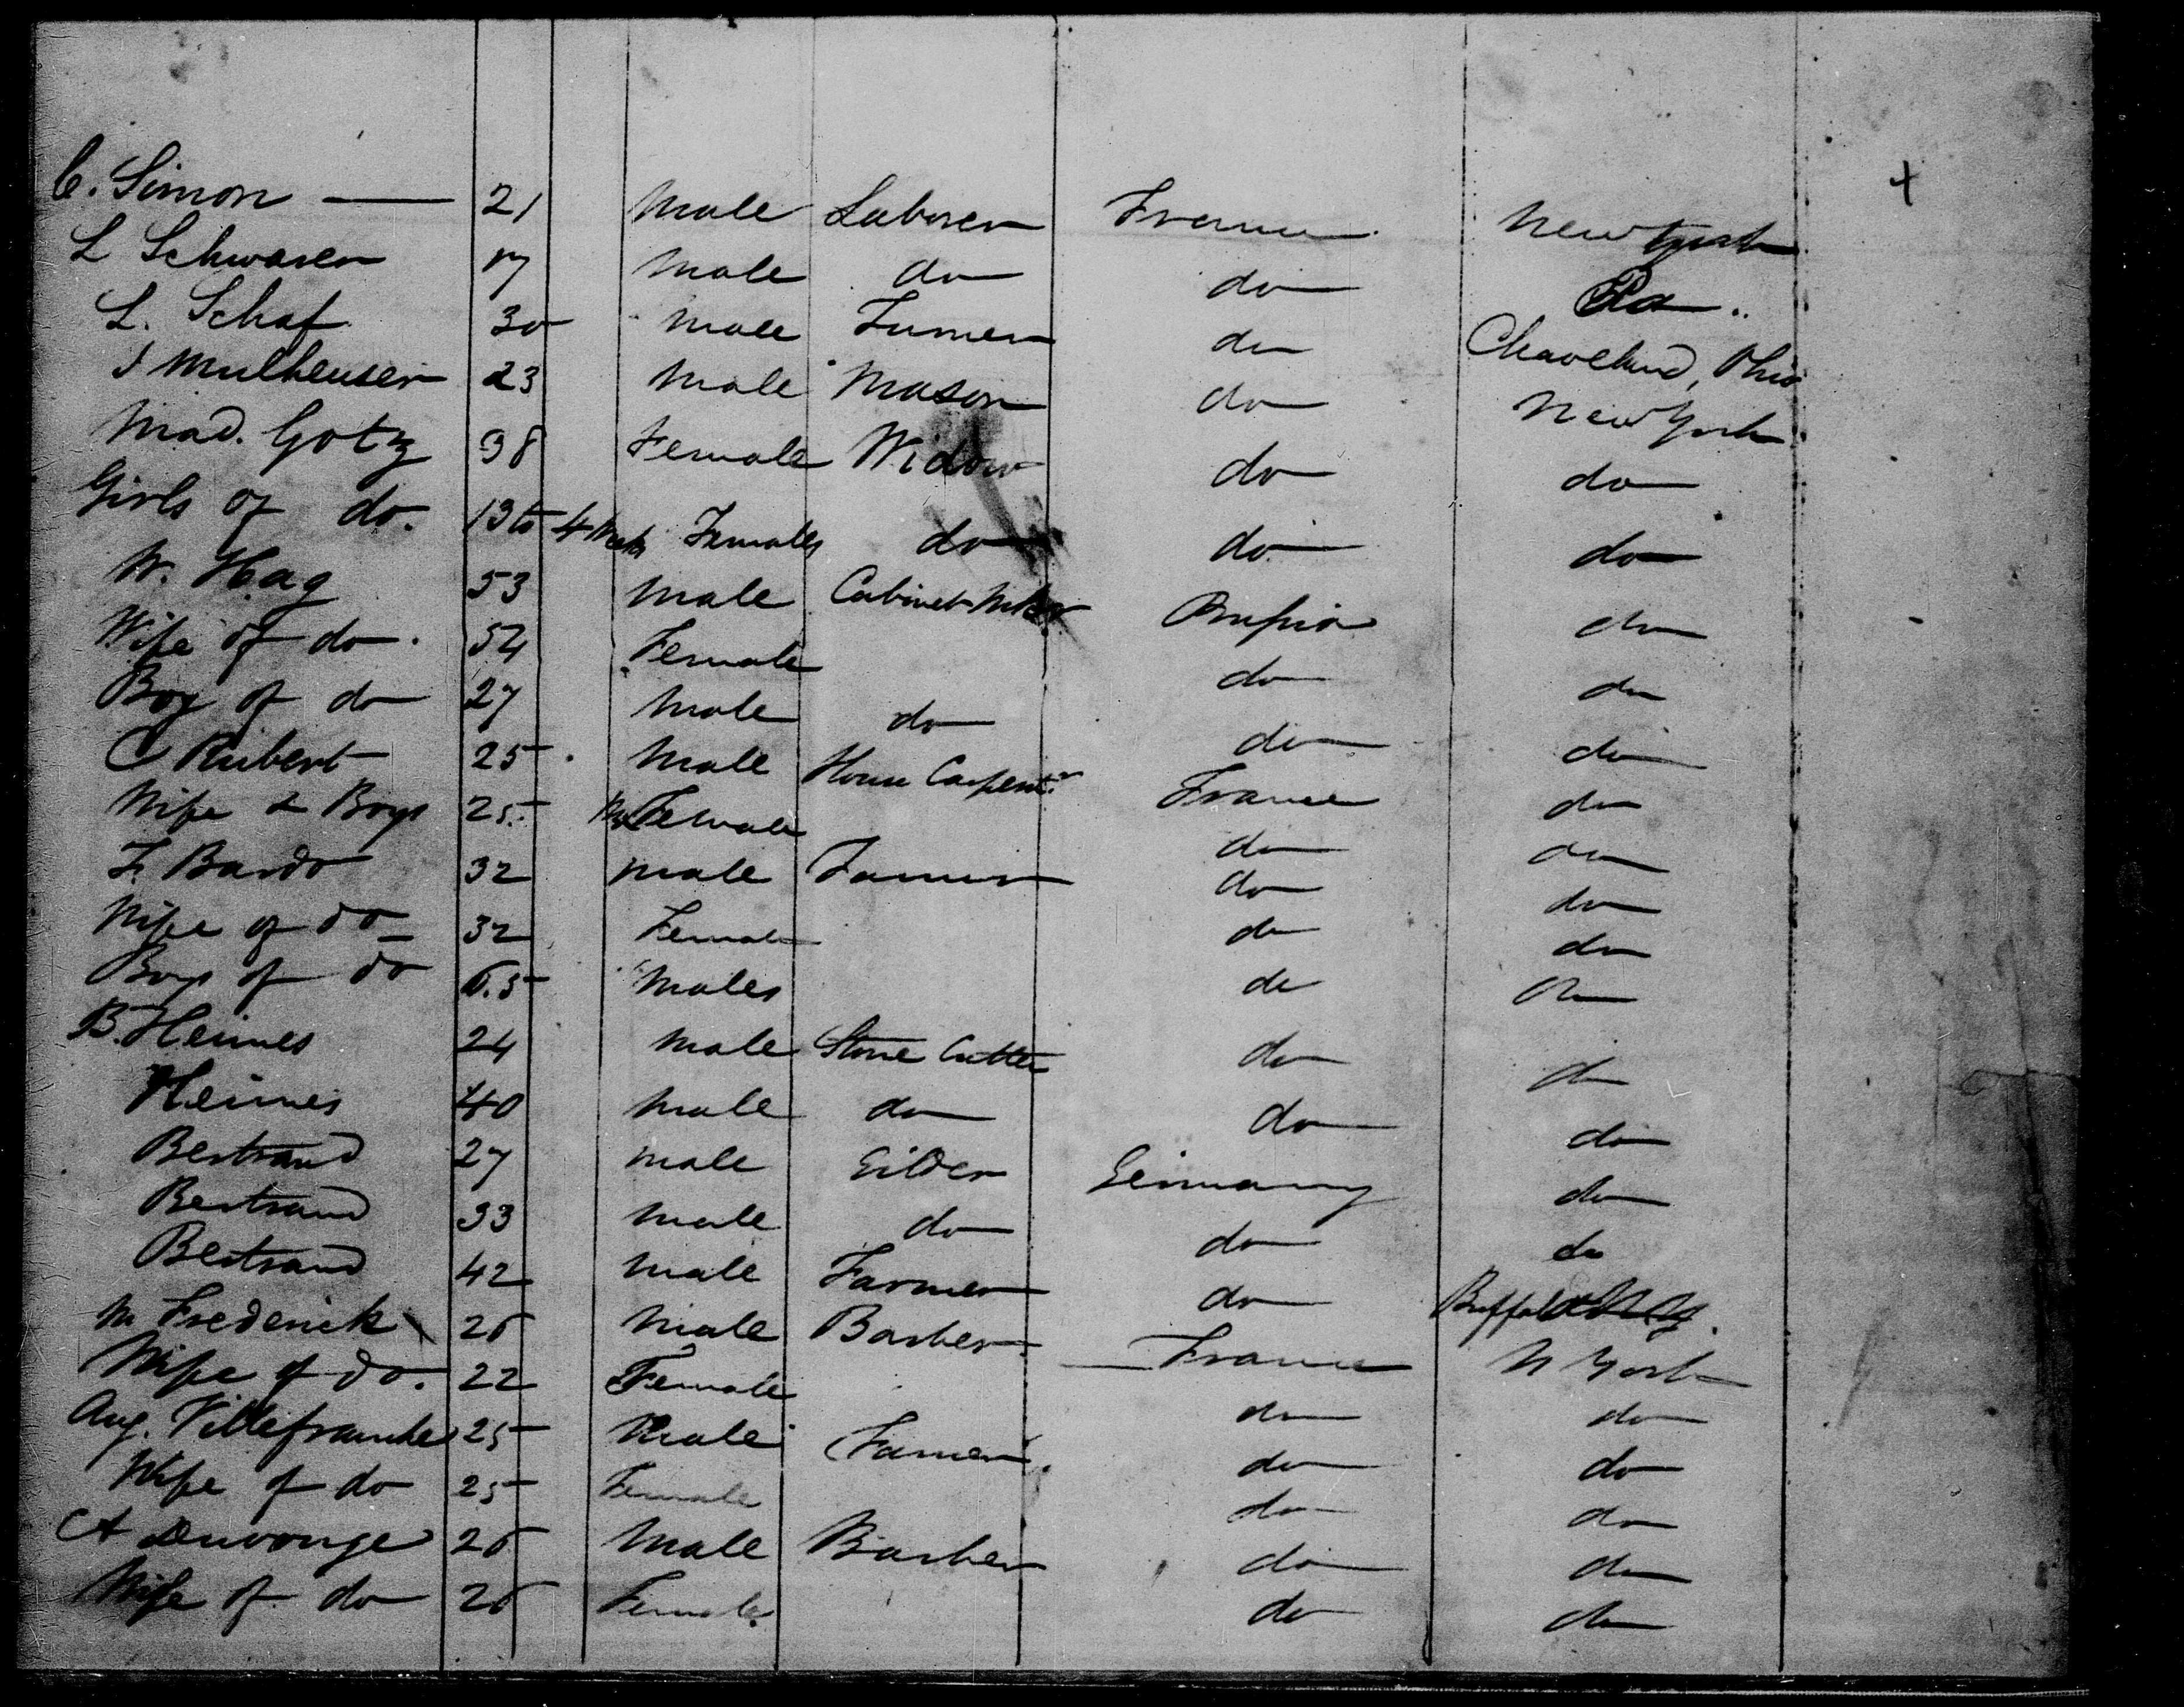 C. Simon — 21 Male Laborer France New York
L Schwarer 17 Male do do Pa..
L. Schaf 30 Male Farmer do Cleaveland, Ohio
J Mulheuser 23 Male Mason do New York
Mad. Gotz 38 Female Widow do do
Girls of do. 13 to 4 Females do do do
W. Hag 53 Male Cabinet Mker Prussia do
Wife of do. 52 Female do do
Boy of do 27 Male do do do
C Rubert 25 Male House Carpentr France do
Wife & Boys 25 Female do do
F. Bardo 32 Male Farmer do do
Wife of do 32 Female do do
Boys of do 6.5 Males do do
B. Heimes 24 Male Stone Cutter do do
Heimes 40 Male do do do
Bertrand 27 Male Gilder Germany do
Bertrand 33 Male do do do
Bertrand 42 Male Farmer do Buffalo N.Y.
M Frederick 26 Male Barber France N York
Wife of do. 22 Female do do
Aug. Villefranche 25 Male Farmer. do do
Wife of do 25 Female do do
A 26 Male Barber do do
Wife of do 26 Female do do